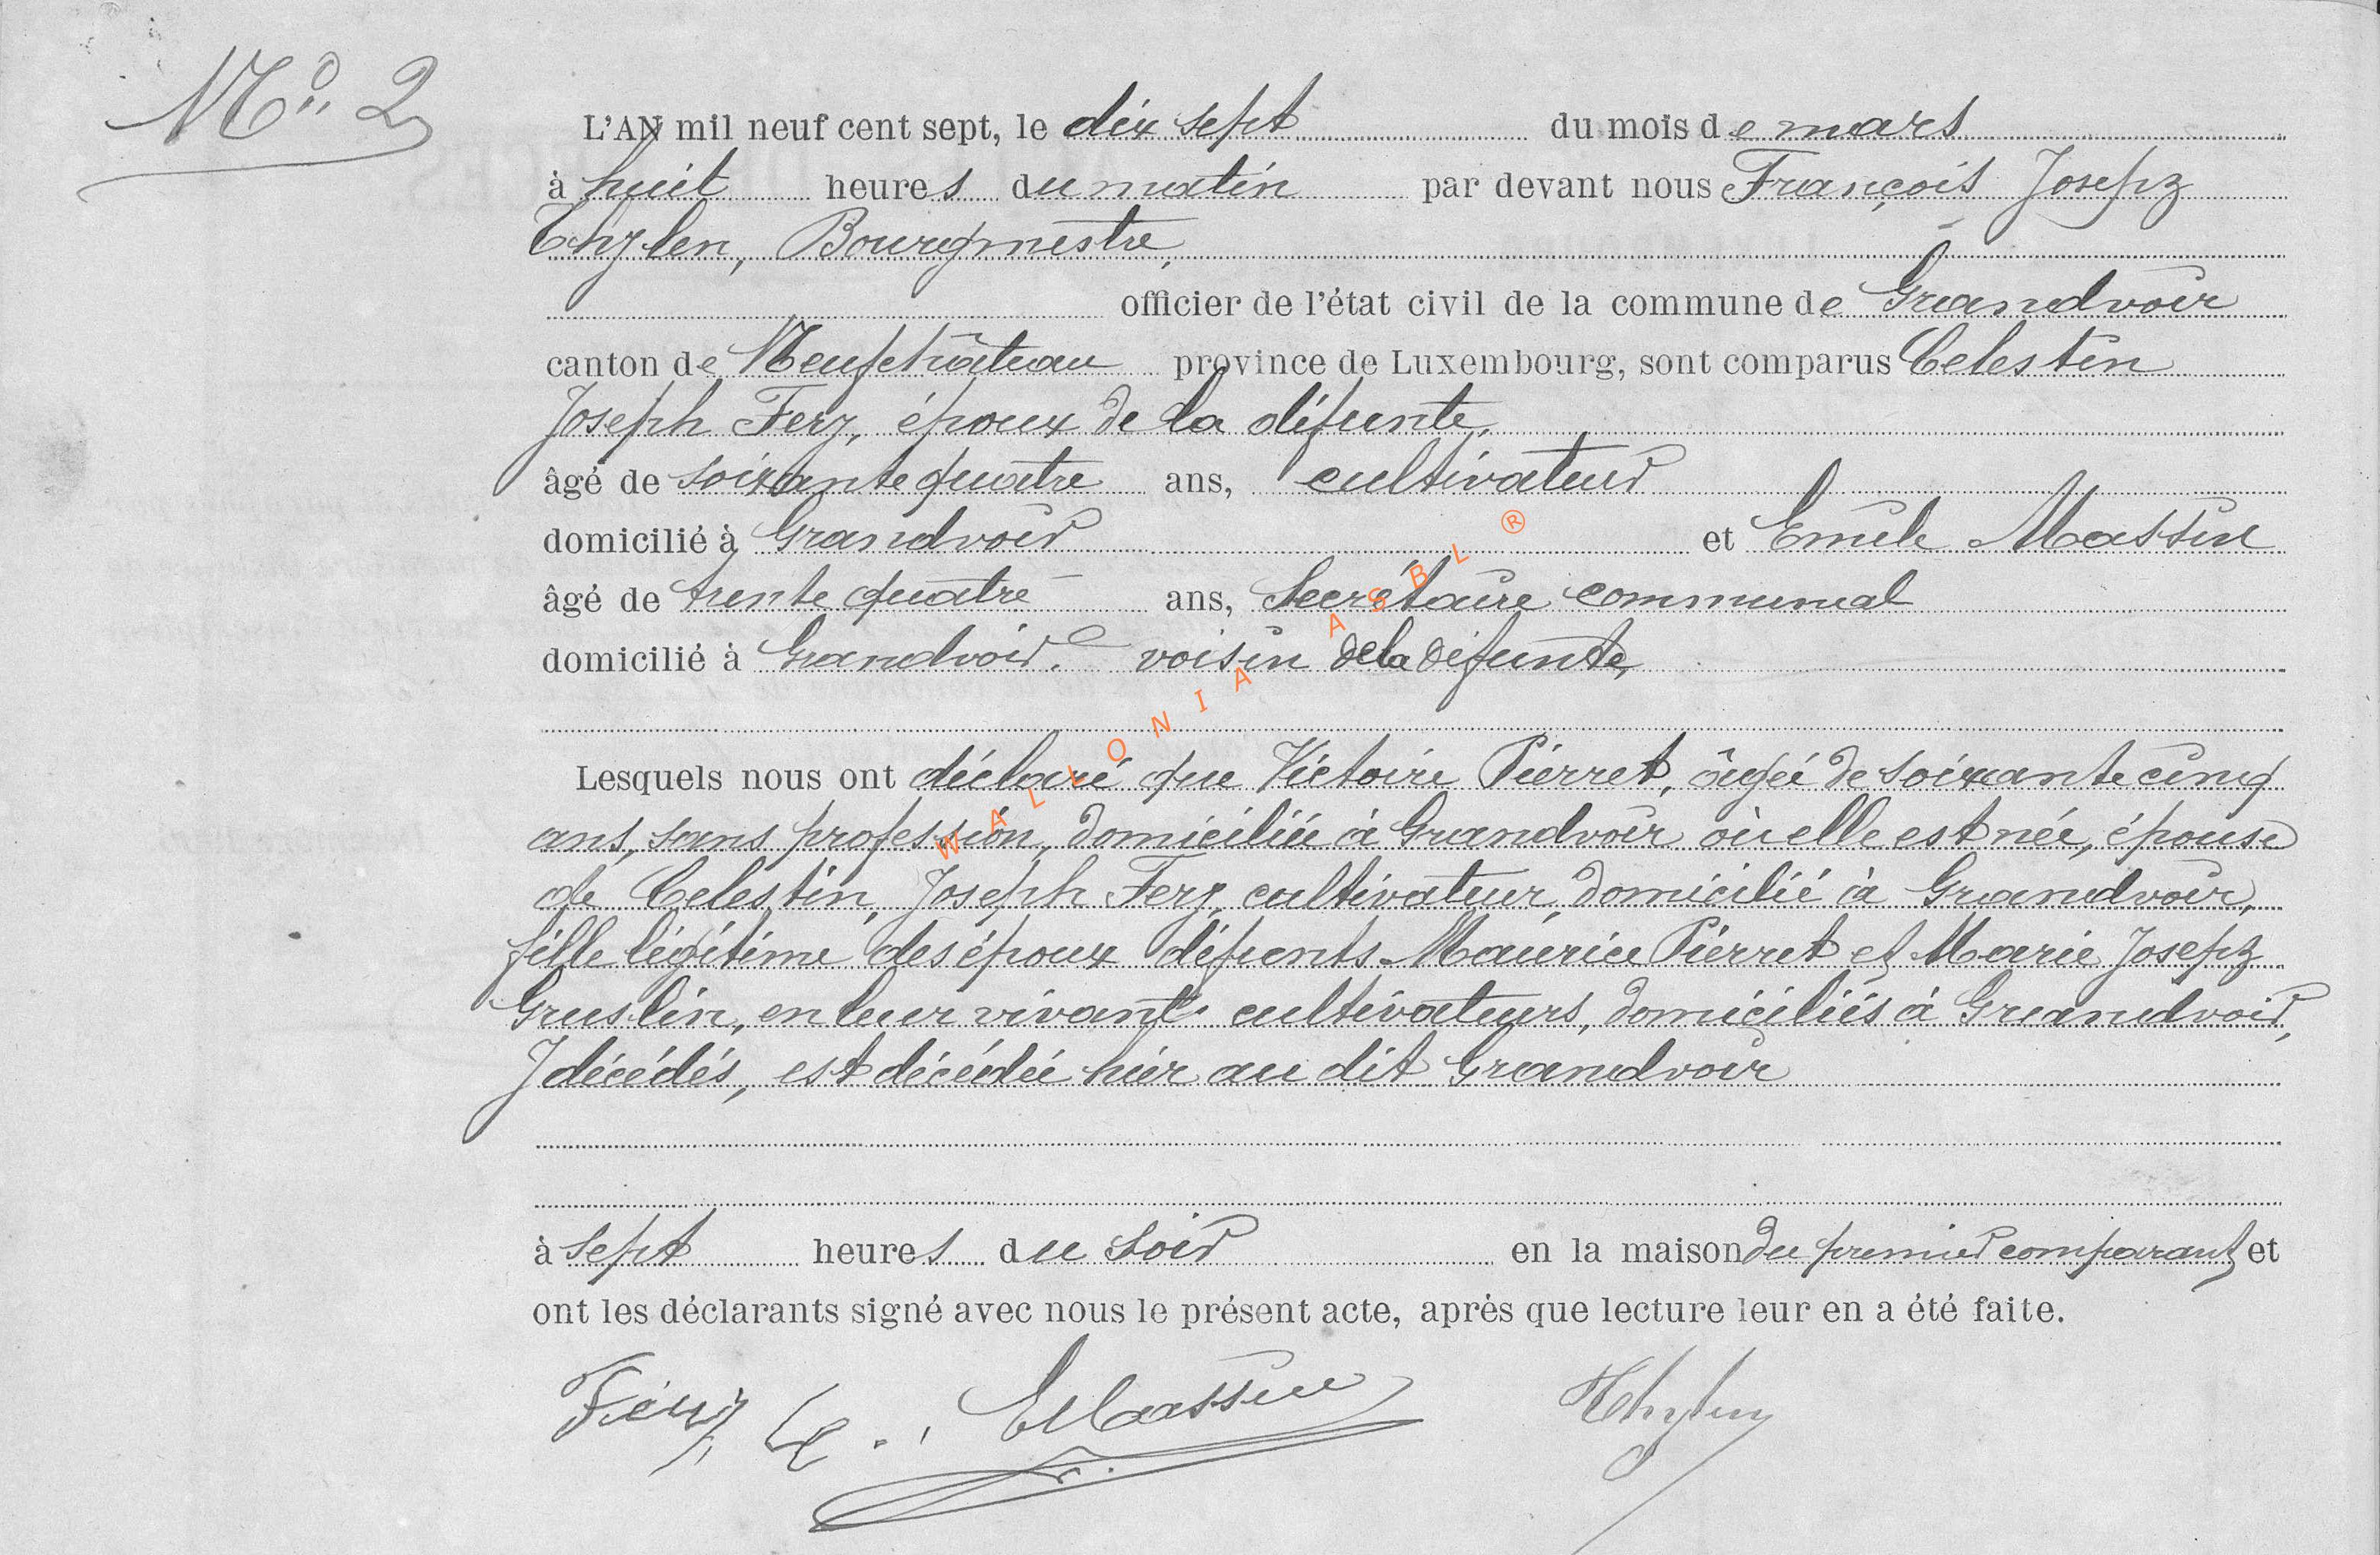 No. 2
L'AN mil neuf cent sept, le dix sept du mois de mars
à huit heures du matin par devant nous François Joseph
Thylen, Bourgmestre,
officier de l'état civil de la commune de Grandvoir
canton de Neufchâteau province de Luxembourg, sont comparus Celestin
Joseph Fery, époux de la défunte,
âgé de soixante quatre ans, cultivateur
domicilié à Grandvoir et Emile Massin
âgé de trente quatre ans, Secrétaire communal
domicilié à Grandvoir. voisin de la défunte,
Lesquels nous ont déclaré que Victoire Pierret, âgée de soixante cinq
ans, sans profession, domiciliée à Grandvoir où elle est née, épouse
de Celestin, Joseph Fery, cultivateur, domicilié à Grandvoir,
fille légitime des époux défunts Maurice Pierret et Marie Joseph
Gruslin, en leur vivant cultivateurs, domiciliés à Grandvoir,
Y décédés, est décédée hier au dit Grandvoir
à sept heures du soir en la maison du premier comparant et
ont les déclarants signé avec nous le présent acte, après que lecture leur en a été faite.
Fery C. EMassin Thylen
WALLONIA ASBL ®